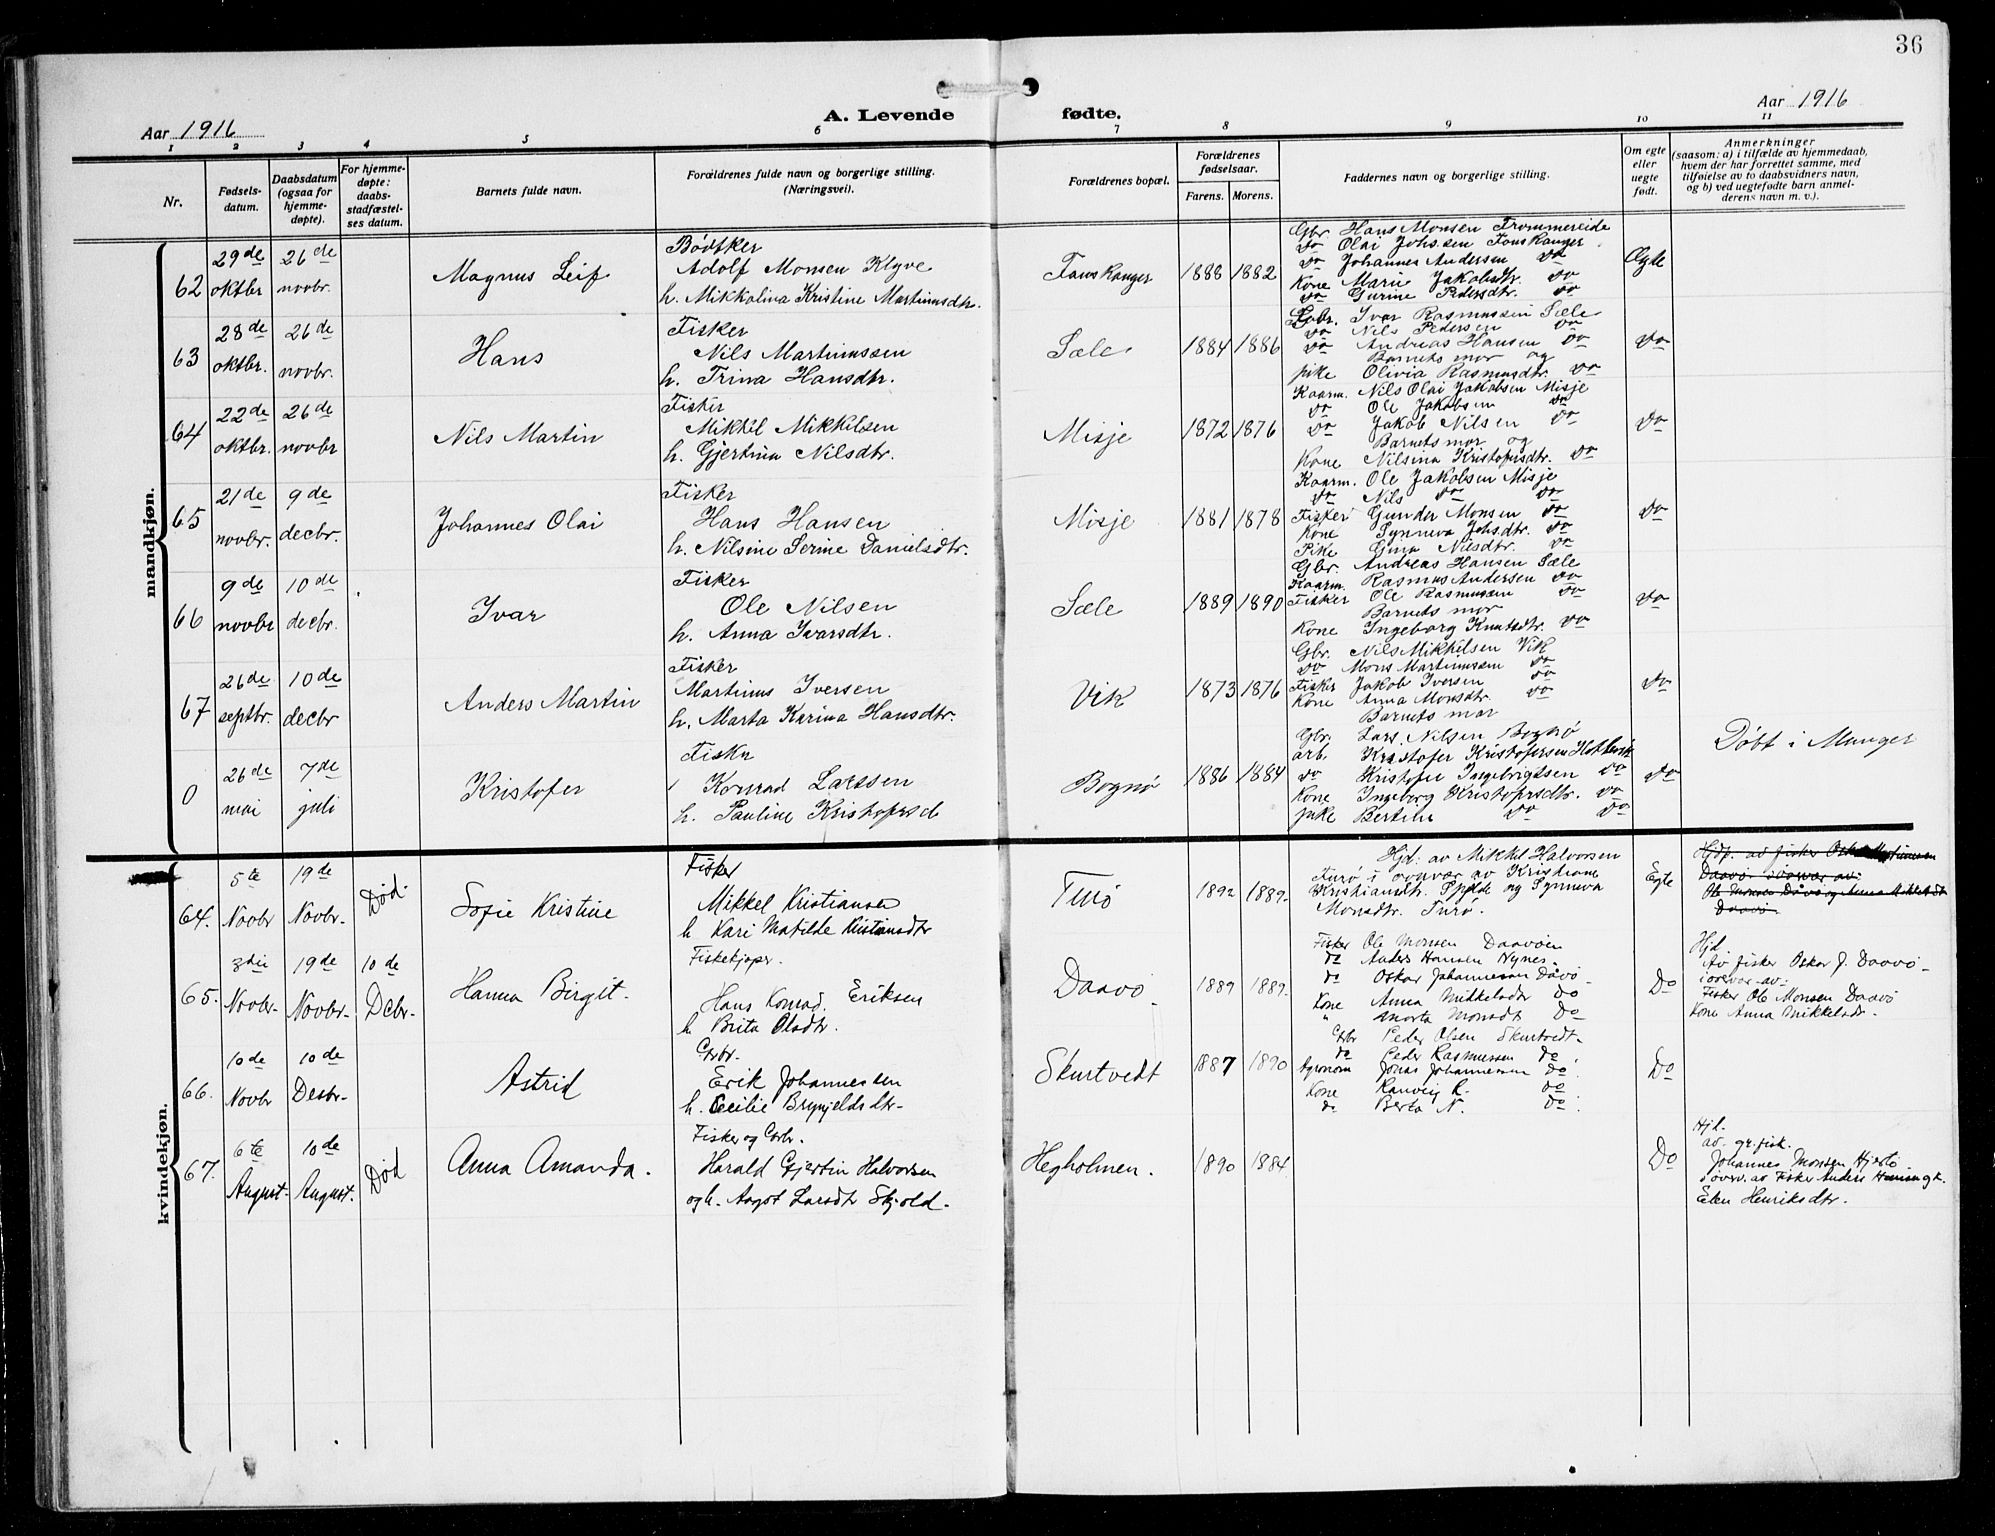 36
Aar 1916
A. Levende fødte.
Aar 1916
1 2 3 4 5 6 7 8 9 10 11
Nr.
Fødsels-
datum.
Daabsdatum
(ogsaa for
hjemme-
døpte).
For hjemme-
døpte:
daabs-
stadfæstel-
ses datum.
Barnets fulde navn.
Forældrenes fulde navn og borgerlige stilling.
(Næringsvei).
Forældrenes bopæl.
Forældrenes
fødselsaar.
Farens. Morens.
Faddernes navn og borgerlige stilling.
Om egte
eller
uegte
født.
Anmerkninger
(saasom: a) i tilfælde av hjemmedaab,
hvem der har forrettet samme, med
tilføielse av to daabsvidners navn,
og b) ved uegtefødte barn anmel-
derens navn m. v.).
mandkjøn.
62
29de
oktbr
26de
novbr.
Magnus Leif
Bødtker
Adolf Monsen Klyve
h. Mikkolina Kristine Martinusdtr.
Fanskanger
1888 1882
Gbr Hans Monsen Trommereide
do Olai Johssen Fanskanger
do Johannes Andersen do
Kone Marie Jakobsdtr. do
do Gurine Pedersdtr. do
Ægte
63
28de
oktbr.
26de
novbr.
Hans
Fisker
Nils Martinussen
h. Trina Hansdtr.
Sæle
1884 1886
Gbr. Ivar Rasmussen Sæle
do Nils Pedersen do
do Andreas Hansen do
Barnets mor og
pike Olivia Rasmusdtr. do
do
64
22de
oktbr.
26de
novbr
Nils Martin
Fisker
Mikkel Mikkelsen
h. Gjertina Nilsdtr.
Misje
1872 1876
Kaarm. Nils Olai Jakobsen Misje
do Ole Jakobsen do
do Jakob Nilsen do
Barnets mor og
Kone Nilsina Kristofersdtr. do
do
65
21de
novbr.
9de
decbr.
Johannes Olai
Fisker
Hans Hansen
h. Nilsine Serine Danielsdtr.
Misje
1881 1878
Kaarm. Ole Jakobsen Misje
do Nils do do
Fisker Gunder Monsen do
Kone Synneva Johsdtr. do
Pike Gina Nilsdtr. do
do
66
9de
novbr
10de
decbr.
Ivar
Fisker
Ole Nilsen
h. Anna Ivarsdtr.
Sæle
1889 1890
Gbr. Andreas Hansen Sæle
Kaarm. Rasmus Andersen do
Fisker Ole Rasmussen do
Barnets mor
Kone Ingeborg Knutsdtr. do
do
67
26de
septbr.
10de
decbr
Anders Martin
Fisker
Martinus Iversen
h. Marta Karina Hansdtr.
Vik
1873 1876
Gbr. Nils Mikkelsen Vik
do Mons Martinussen do
Fisker Jakob Iversen do
Kone Anna Monsdtr. do
Barnets mor
do
0
26de
mai
7de
juli
Kristofer
Fisker
Konrad Larssen
h. Pauline Kristofersd
Bognø
1886 1884
Gbr. Lars Nilsen Bognø
arb. Kristofer Kristofersen
do Kristofer Ingebrigtsen do
Kone Ingeborg Kristofersdtr. do
pike Bertine do do
do
Døbt i Manger
kvindekjøn.
64.
5te
Novbr
19de
Novbr.
Død.
Sofie Kristine
Fisker
Mikkel Kristiansen
h Kari Matilde Kristiansdtr
Turø
1892 1889.
Hjd. av Mikkel Halvorsen
Turø i overvær av Kristiane
Kristiansdtr. Spjeld og Synneva
Monsdtr. Turø.
Egte
Hjdp. av fisker Oskar
Daavø i overvær av
Ole Monsen Daavø og Anna Mikkelsdt
Daavø.
65.
3die
Novbr-
19de
Novbr-
10de
Dcbr-
Hanna Birgit.
Fiskekjøper.
Hans Konrad. Eriksen
h Brita Olsdtr.
Daavø
1889 1889.
Fisker Ole Monsen Daavøen
do Anders Hansen Nynes
do Oskar Johannessen Davø
Kone Anna Mikkelsdtr do
" Marta Monsdt do
Do
Hjd
Av fisker Oskar J. Daavø
i overvær av
Fisker Ole Monsen Daavø
Kone Anna Mikkelsdr.
66.
10de
Novbr
10de
Desbr-
Astrid
Grbr.
Erik Johannessen
h. Cecilie Brynjeldsdtr-
Skurtvedt
1887 1890
Grbr Peder Olsen Skurtvedt
do Peder Rasmussen do
Agronom Jonas Johannessen do.
Kone Ranveig R. do
do Berta N. do.
Do
67.
6te
August.
10de
August.
Død
Anna Amanda.
Fisker og Grbr.
Harald Gjertin Halvorsen
og h. Aagot Larsdtr Skjold.
Hegholmen.
1890 1884
Do
Hjd.
av. gr. fisk.
Johannes Monsen Hjertø
i overv. av Fisker Anders
Elen Henriksdtr.